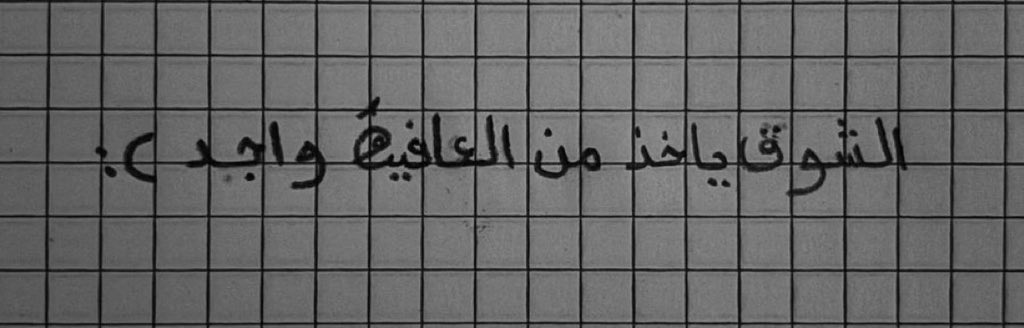 الشوق ياخذ من العافية واجد ):